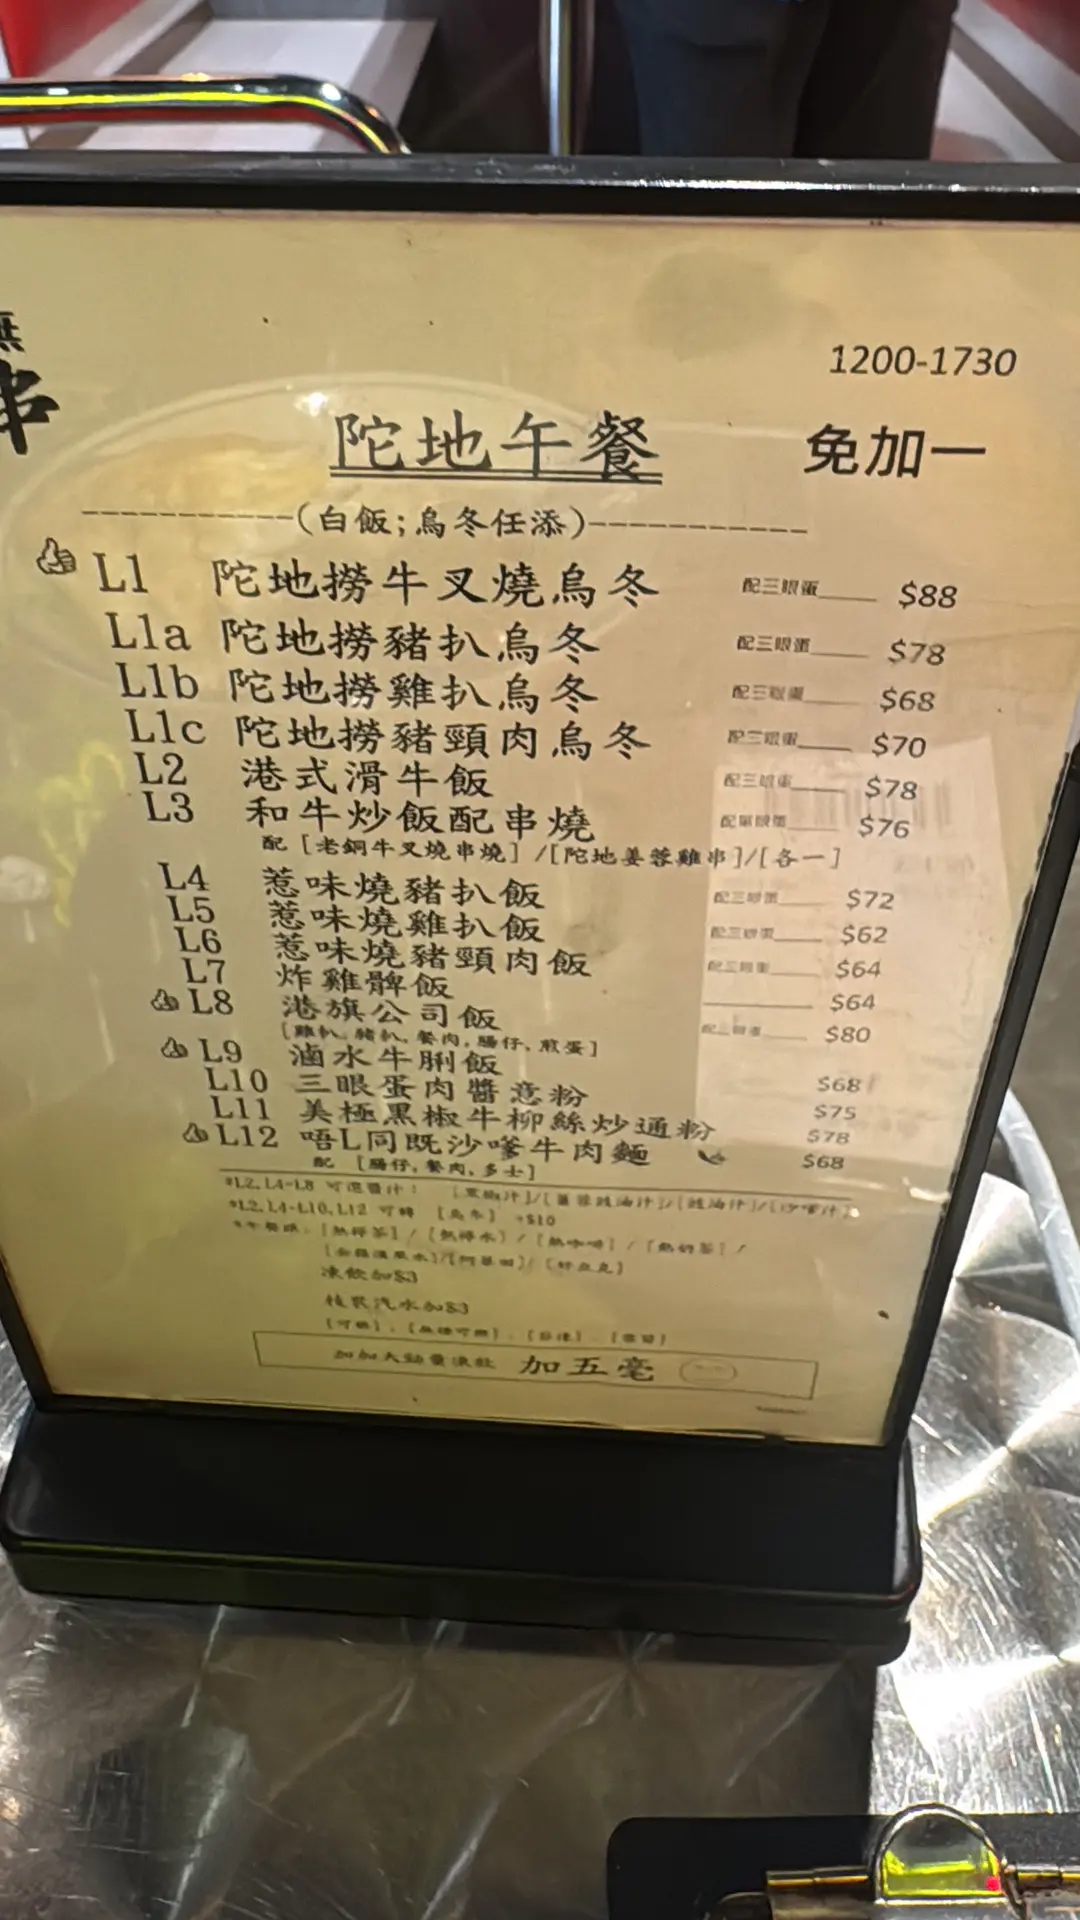 串
1200-1730
陀地午餐 免加一
(白飯;烏冬任添)
L1 陀地撈牛叉燒烏冬 配三眼蛋 $88
L1a 陀地撈豬扒烏冬 配三眼蛋 $78
L1b 陀地撈雞扒烏冬 配三眼蛋 $68
L1c 陀地撈豬頸肉烏冬 配三眼蛋 $70
L2 港式滑牛飯 配三眼蛋 $78
L3 和牛炒飯配串燒 配單眼蛋 $76
配 [老銅牛叉燒串燒] /[陀地姜蓉雞串]/[各一]
L4 惹味燒豬扒飯 配三眼蛋 $72
L5 惹味燒雞扒飯 配三眼蛋 $62
L6 惹味燒豬頸肉飯 配三眼蛋 $64
L7 炸雞髀飯 $64
L8 港旗公司飯 配三眼蛋 $80
[雞扒,豬扒,餐肉,腸仔,煎蛋]
L9 滷水牛脷飯 $68
L10 三眼蛋肉醬意粉 $75
L11 美極黑椒牛柳絲炒通粉 $78
L12 唔L同既沙嗲牛肉麵 $68
配 [腸仔,餐肉,多士]
*L2,L4-L8 可選醬汁: [黑椒汁]/[薑蓉豉油汁]/[豉油汁]/[沙嗲汁]
*L2,L4-L10,L12 可轉 [烏冬] +$10
凍飲加$3
枝裝汽水加$3
加五毫